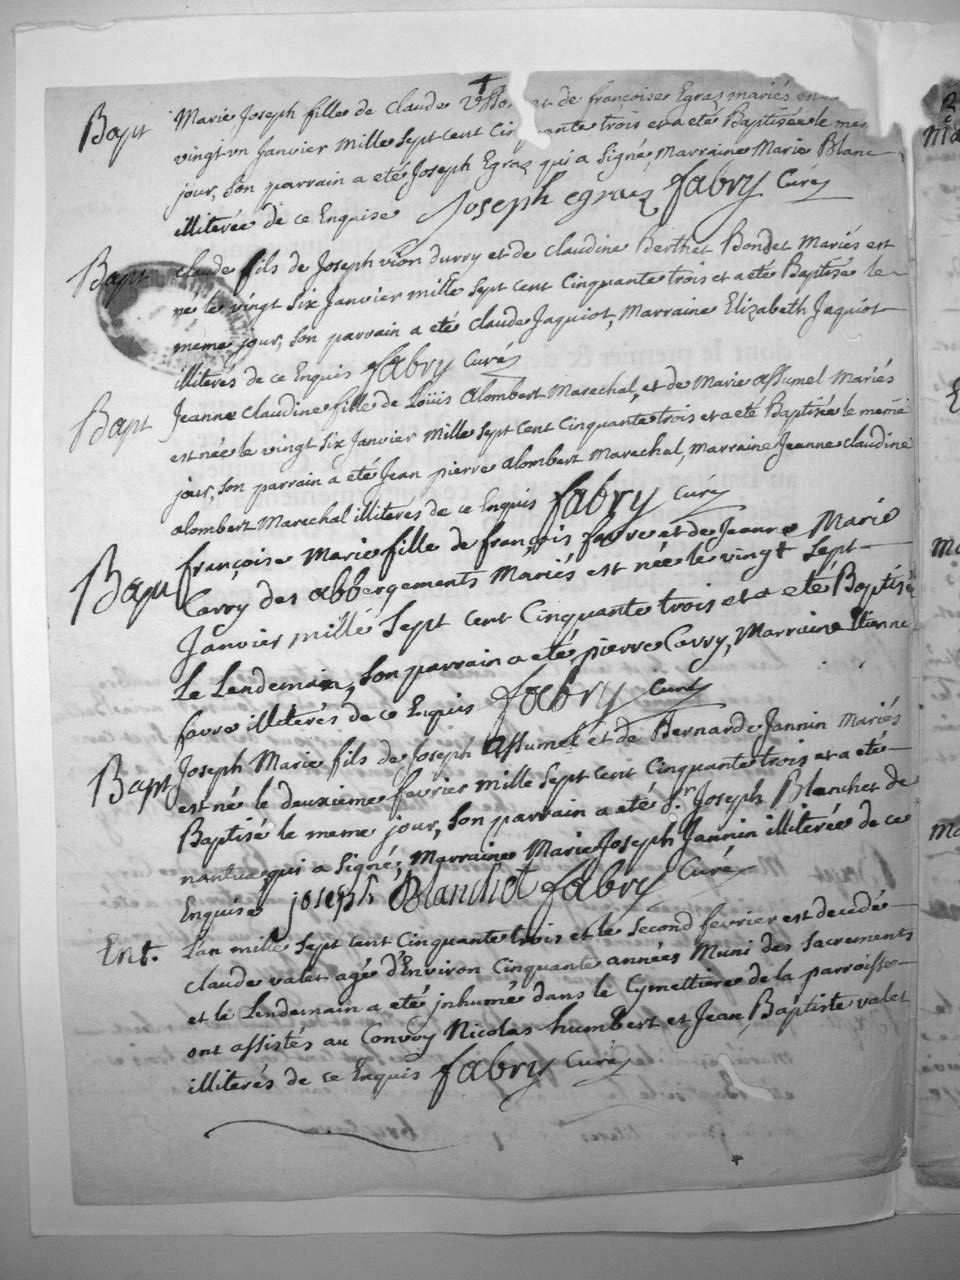 Bapt Marie Joseph fille de Claude et de françoise Egraz mariés
vingt un Janvier mille sept cent Cinquante trois et a eté Baptisée le
jour, son parrain a eté Joseph Egraz qui a signé, Marraine Marie Blanc
illiterée de ce Enquise Joseph egraz fabry Curé
Bapt Claude fils de Joseph vion durry et de Claudine Berthet Bondet Mariés est
né le vingt six Janvier mille sept cent Cinquante trois et a eté Baptisé le
meme jour, son parrain a eté Claude Jaquiot, Marraine Elizabeth Jaquiot
illiterés de ce Enquis fabry Curé
Bapt Jeanne Claudine fille de Loüis alombert Marechal, et de Marie assumel Mariés
est née le vingt six Janvier mille sept cent Cinquante trois et a eté Baptisée le meme
jour, son parrain a eté Jean pierre alombert Marechal, marraine Jeanne Claudine
alombert Marechal illiteres de ce Enquis fabry Curé
Bapt françoise Marie fille de françois favre et de Jeanne Marie
Carry des abbergements Mariés est née le vingt sept
Janvier mille sept cent Cinquante trois et a eté Baptisé
Le Lendemain, son parrain a eté pierre Carry, Marraine Etienne
favre illiterés de ce Enquis fabry Curé
Bapt Joseph Marie fils de Joseph assumel et de Bernarde Jannin Mariés
est né le deuxieme fevrier mille sept cent Cinquante trois et a eté
Baptisé le meme jour, son parrain a eté Sr. Joseph Blanchet de
nantua qui a signé; Marraine Marie Joseph Jannin illiterée de ce
Enquise joseph Blanchet fabry Curé
Ent. L'an mille sept cent Cinquante trois et le second fevrier est decedé
Claude valet agé d'Environ Cinquante années Muni des sacrements
et le Lendemain a eté inhumé dans le Cymettiere de la parroisse
ont assistés au Convoy Nicolas humbert et Jean Baptiste valet
illiterés de ce Enquis fabry Curé